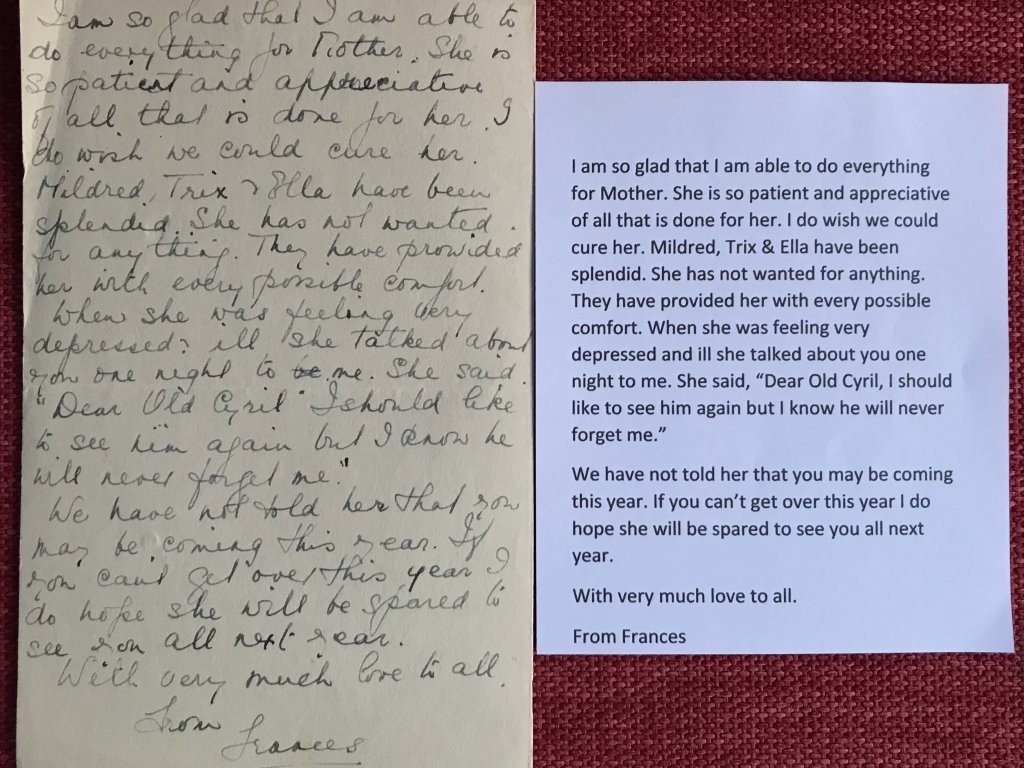 I am so glad that I am able to
do everything for Mother. She is
so patient and appreciative
of all that is done for her. I
do wish we could cure her.
Mildred, Trix & Ella have been
splendid. She has not wanted.
for anything. They have provided
her with every possible comfort.
When she was feeling very
depressed & ill she talked about
you one night to be me. She said.
"Dear Old Cyril" I should like
to see him again but I know he
will never forget me."
We have not told her that you
may be coming this year. If
you can't get over this year I
do hope she will be spared to
see you all next year.
With very much love to all.
From
Frances
I am so glad that I am able to do everything
for Mother. She is so patient and appreciative
of all that is done for her. I do wish we could
cure her. Mildred, Trix & Ella have been
splendid. She has not wanted for anything.
They have provided her with every possible
comfort. When she was feeling very
depressed and ill she talked about you one
night to me. She said, “Dear Old Cyril, I should
like to see him again but I know he will never
forget me.”
We have not told her that you may be coming
this year. If you can’t get over this year I do
hope she will be spared to see you all next
year.
With very much love to all.
From Frances